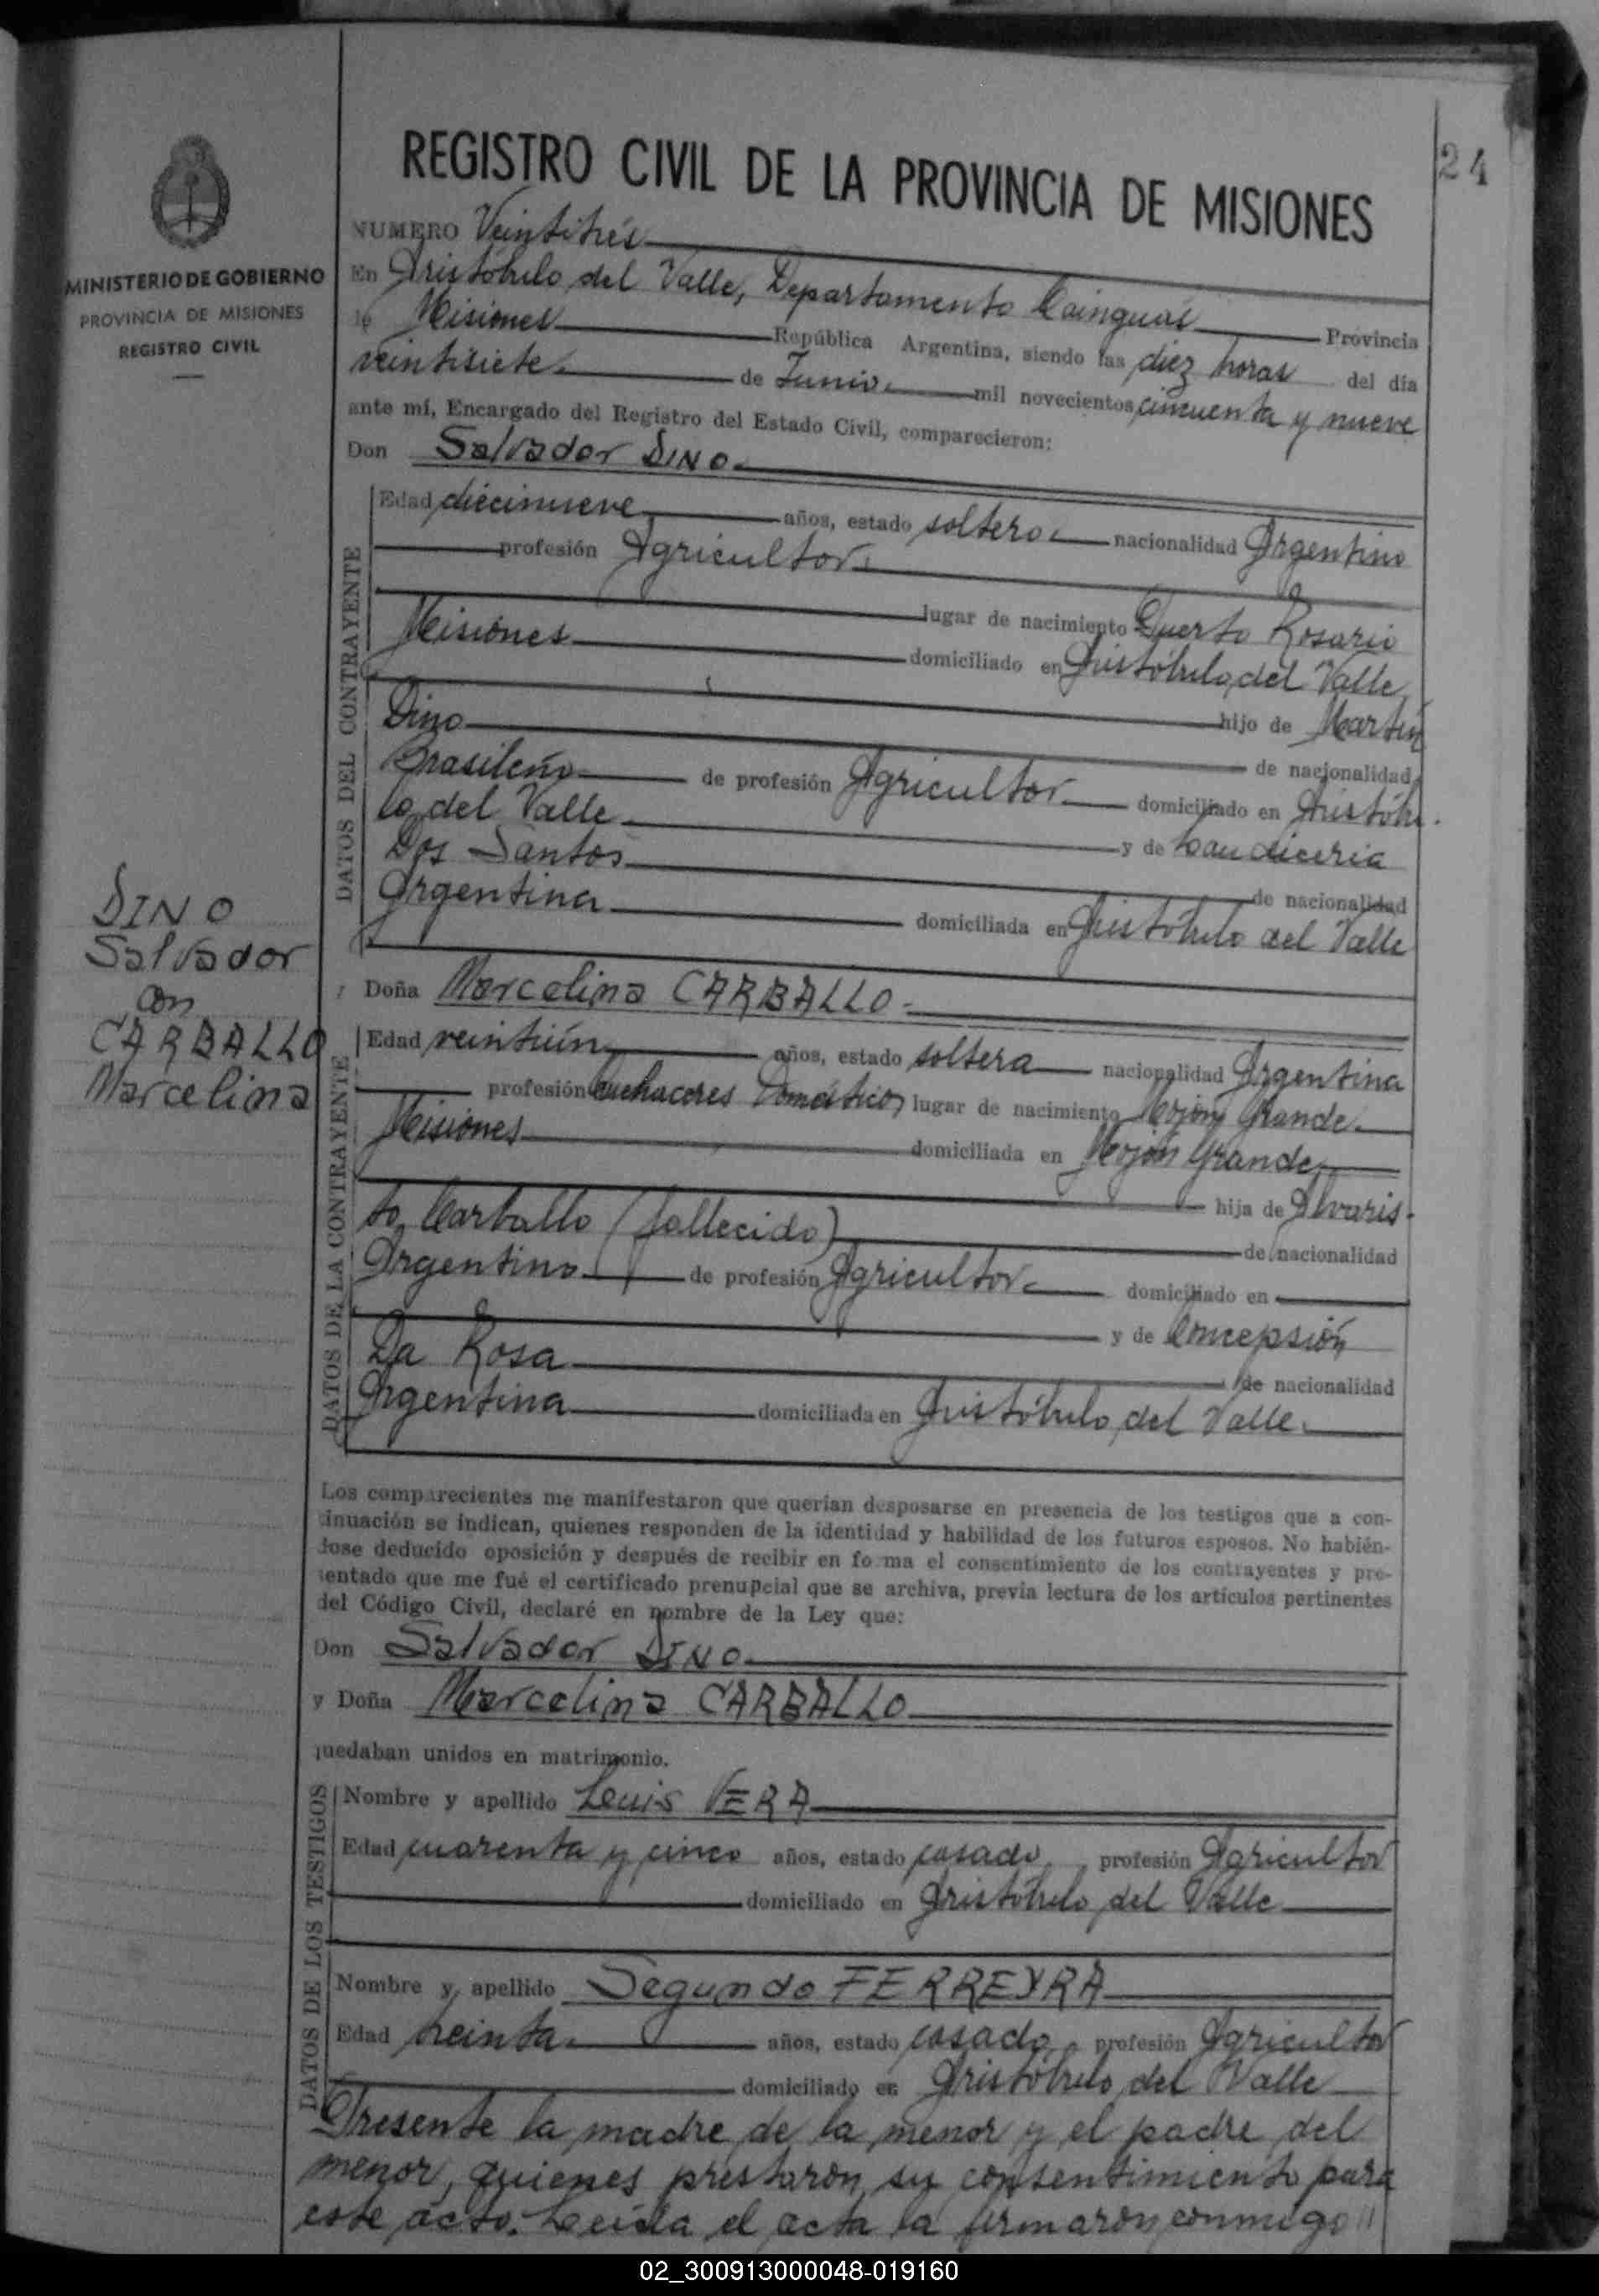 24
REGISTRO CIVIL DE LA PROVINCIA DE MISIONES
MINISTERIO DE GOBIERNO
PROVINCIA DE MISIONES
REGISTRO CIVIL
NUMERO Veintitrés
En Aristóbulo del Valle, Departamento Cainguás Provincia
de Misiones República Argentina, siendo las diez horas del día
veintisiete de Junio mil novecientos cincuenta y nueve
ante mí, Encargado del Registro del Estado Civil, comparecieron:
Don Salvador DINO
DATOS DEL CONTRAYENTE
Edad diecinueve años, estado soltero nacionalidad Argentino
profesión Agricultor
lugar de nacimiento Puerto Rosario
Misiones domiciliado en Aristóbulo del Valle
hijo de Martín
Dino de nacionalidad
Brasileño de profesión Agricultor domiciliado en Aristóbu-
lo del Valle y de
Dos Santos de nacionalidad
Argentina domiciliada en Aristóbulo del Valle
DINO
Salvador
con
CARBALLO
Marcelina
y Doña Marcelina CARBALLO
DATOS DE LA CONTRAYENTE
Edad veintiún años, estado soltera nacionalidad Argentina
profesión Quehaceres Domésticos lugar de nacimiento Mojón Grande
Misiones domiciliada en Mojón Grande
hija de Alvaris-
to Carballo (fallecido) de nacionalidad
Argentino de profesión Agricultor domiciliado en
y de Concepsión
Da Rosa de nacionalidad
Argentina domiciliada en Aristóbulo del Valle
Los comparecientes me manifestaron que querían desposarse en presencia de los testigos que a con-
tinuación se indican, quienes responden de la identidad y habilidad de los futuros esposos. No habién-
dose deducido oposición y después de recibir en forma el consentimiento de los contrayentes y pre-
sentado que me fué el certificado prenupcial que se archiva, previa lectura de los artículos pertinentes
del Código Civil, declaré en nombre de la Ley que:
Don Salvador DINO
y Doña Marcelina CARBALLO
quedaban unidos en matrimonio.
DATOS DE LOS TESTIGOS
Nombre y apellido Luis VERA
Edad cuarenta y cinco años, estado casado profesión Agricultor
domiciliado en Aristóbulo del Valle
Nombre y apellido Segundo FERREYRA
Edad treinta años, estado casado profesión Agricultor
domiciliado en Aristóbulo del Valle
Presente la madre de la menor y el padre del
menor, quienes prestaron su consentimiento para
este acto. Leída el acta la firmaron conmigo //
02_300913000048-019160